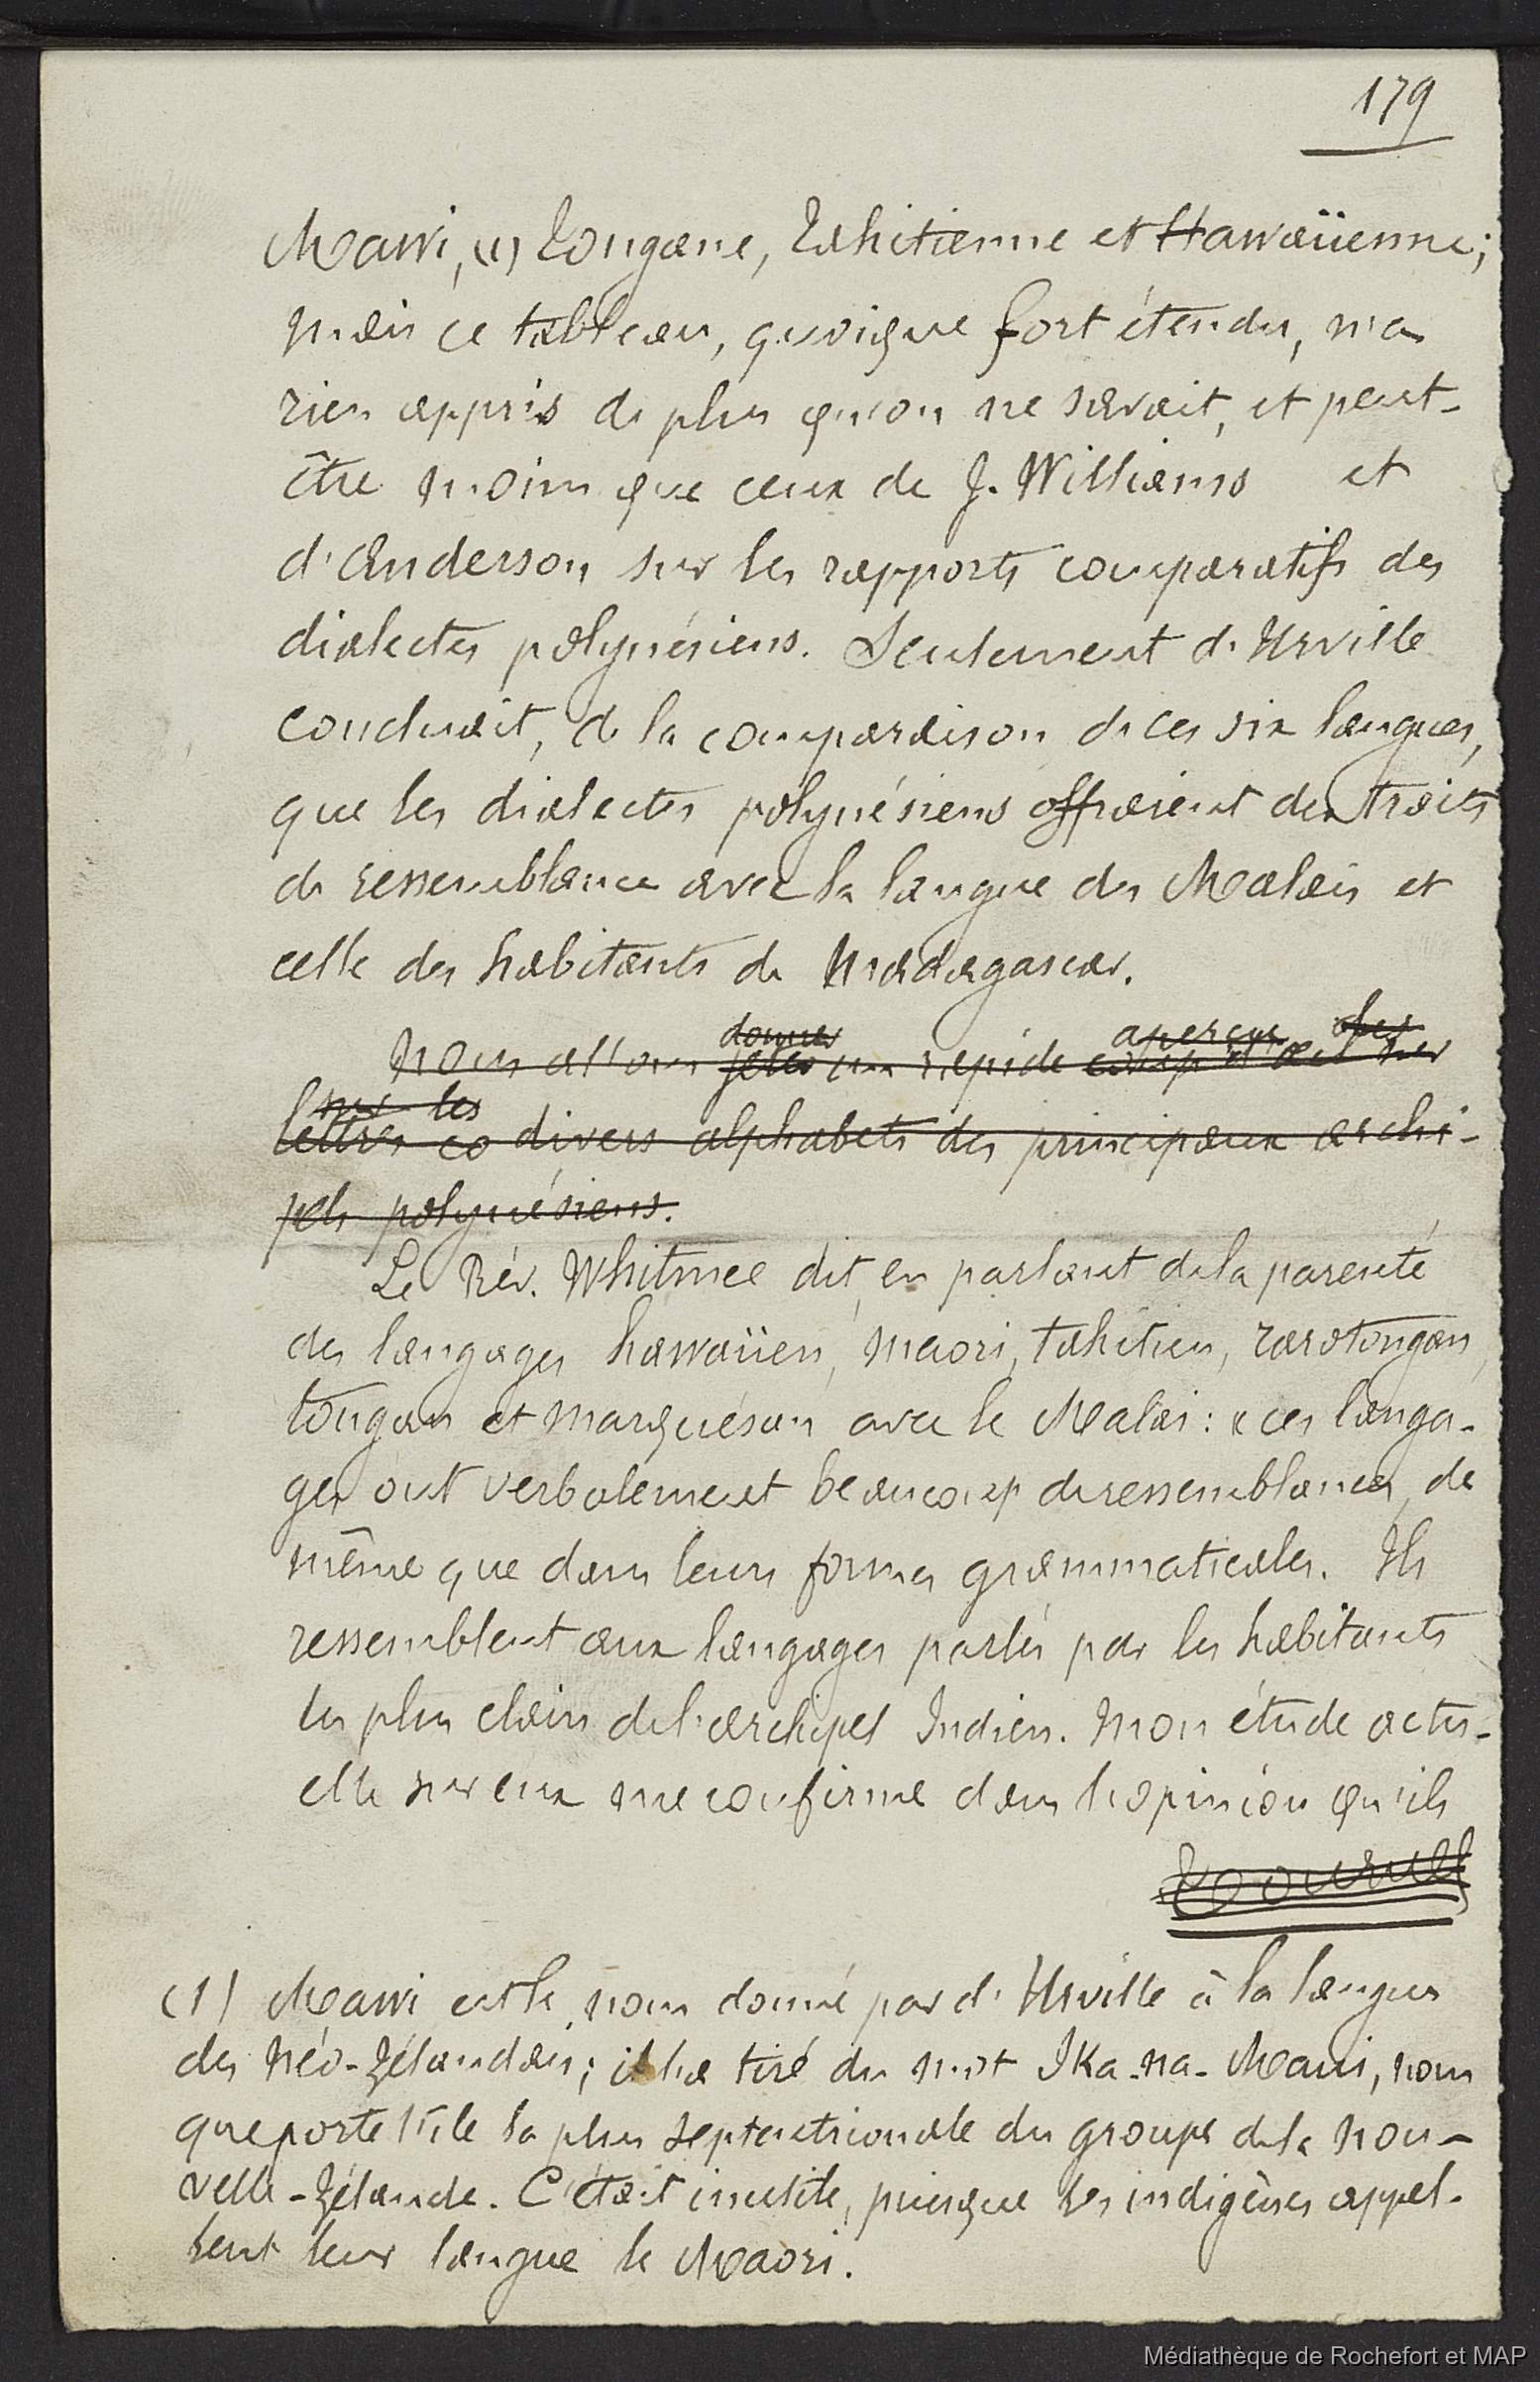 179
Mawi, (1) Tongane, Tahitienne et Hawaïienne;
mais ce tableau, quoique fort étendu, n'a
rien appris de plus qu'on ne savait, et peut-
être moins que ceux de J. Williams et
d'Anderson sur les rapports comparatifs des
dialectes polynésiens. Seulement d'Urville
concluait, de la comparaison de ces six langues,
que les dialectes polynésiens offraient des traits
de ressemblance avec la langue des Malais et
celle des habitants de Madagascar.
donner aperçu des
Nous allons jeter un rapide coup d'œil sur
sur les
lettres co divers alphabets des principaux archi-
pels polynésiens.
Le Rév. Whitmee dit, en parlant de la parenté
des langages hawaïien, maori, tahitien, rarotongan,
tongan et marquésan avec le Malai: « ces langa-
ges ont verbalement beaucoup de ressemblances, de
même que dans leurs formes grammaticales. Ils
ressemblent aux langages parlés par les habitants
les plus clairs de l'archipel Indien. Mon étude actu-
elle sur eux me confirme dans l'opinion qu'ils
(1) Mawi est le nom donné par d'Urville à la langue
des Néo-Zélandais; il l'a tiré du mot Ika-na-Maui, nom
que porte l'île la plus septentrionale du groupe de la Nou-
velle-Zélande. C'était inutile, puisque les indigènes appel-
lent leur langue le Maori.
Médiathèque de Rochefort et MAP